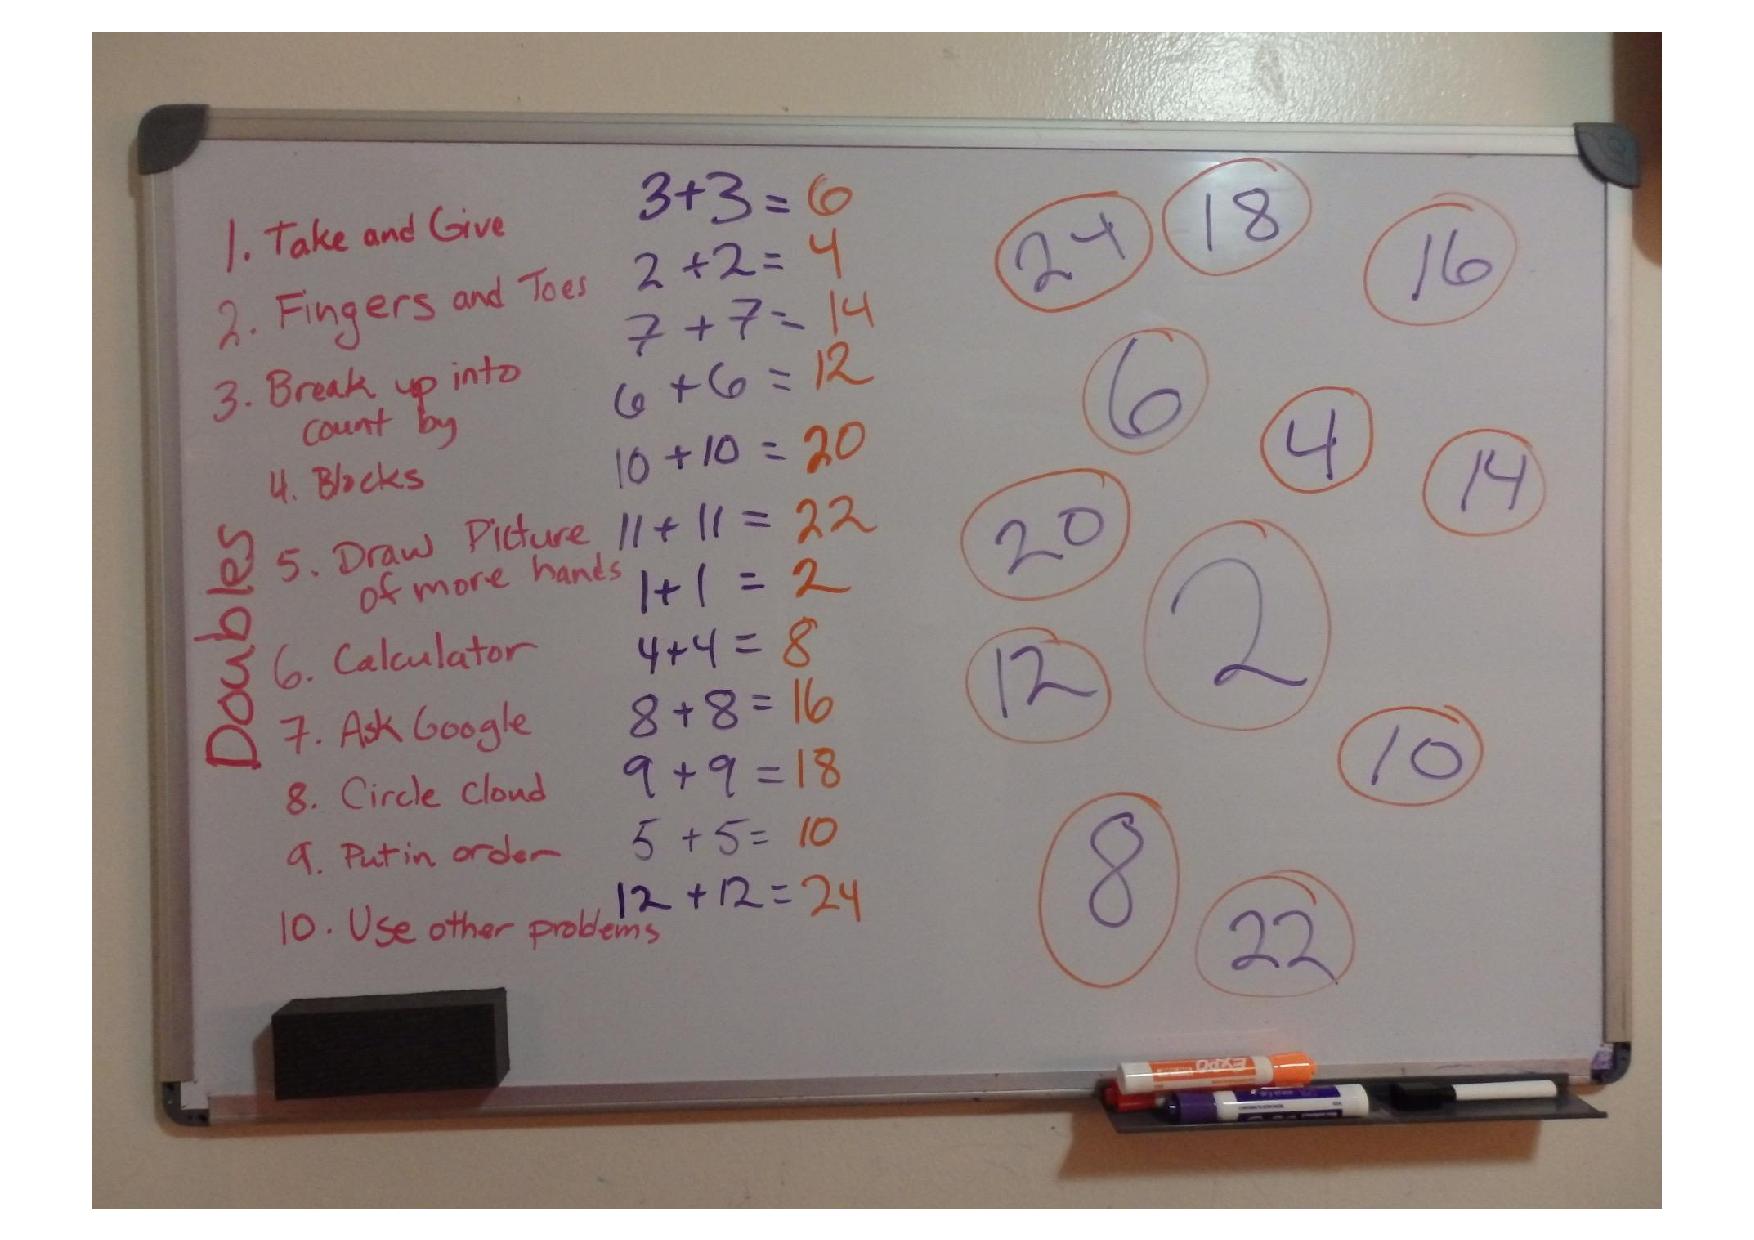 Doubles
1. Take and Give
2. Fingers and Toes
3. Break up into
count by
4. Blocks
5. Draw Picture
of more hands
6. Calculator
7. Ask Google
8. Circle Cloud
9. Put in order
10. Use other problems
3+3=6
2+2=4
7+7=14
6+6=12
10+10=20
11+11=22
1+1=2
4+4=8
8+8=16
9+9=18
5+5=10
12+12=24
24
18
16
6
4
14
20
2
12
10
8
22
EXPO